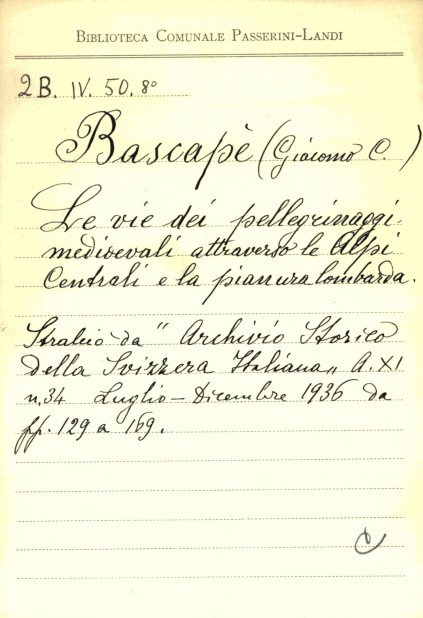 BIBLIOTECA COMUNALE PASSERINI-LANDI
2B. IV. 50. 8°
Bascapè (Giacomo C.)
Le vie dei pellegrinaggi
medioevali attraverso le Alpi
Centrali e la pianura lombarda.
Stralcio da "Archivio Storico
della Svizzera Italiana" A. XI
n. 34 Luglio - Dicembre 1936 da
pp. 129 a 169.